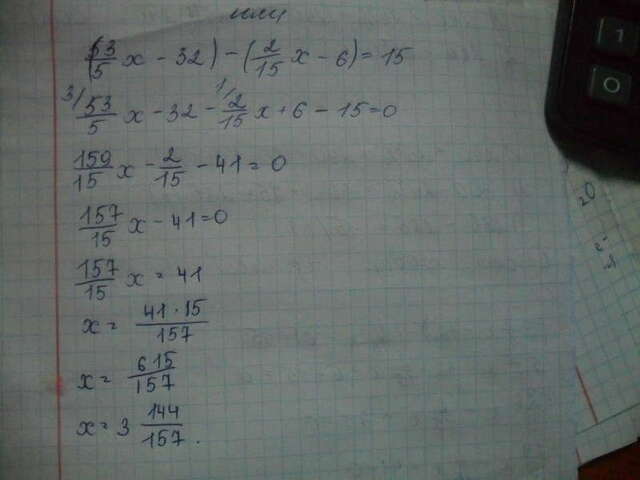 или
(53/5 x - 32) - (2/15 x - 6) = 15
3/ 53/5 x - 32 - 1/ 2/15 x + 6 - 15 = 0
159/15 x - 2/15 - 41 = 0
157/15 x - 41 = 0
157/15 x = 41
x = 41 · 15/157
x = 615/157
x = 3 144/157.
1
0
20